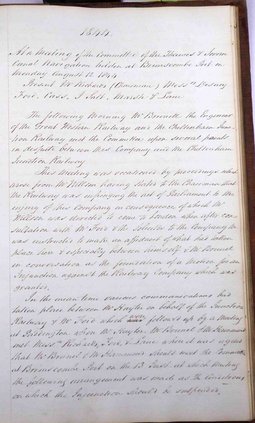 1844
At a Meeting of the Committee of the Thames & Severn
Canal Navigation holden at Brimscombe Port on
Monday August 12 1844
Present Mr Richards (Chairman) Messrs Disney
Ford, Cass, J Salt, Marsh & Lane
The following Morning Mr Brunell the Engineer
of the Great Western Railway and the Cheltenham Junc
tion Railway met the Committee upon several points
in dispute between this Company and the Cheltenham
Junction Railway
This Meeting was occasioned by proceedings which
arose from Mr Wilson having stated to the Chairman that
the Railway was infringing the act of Parliament to the
injury of this Company in consequence of which Mr
Wilson was directed to come to London when after con
sultation with Mr Ford & the Solicitor to the Company he
was instructed to make an affidavit of what had taken
place & respectively between himself & Mr Brunel
in conversation as the foundation of a Motion for an
Injunction against the Railway Company which was
granted.
In the mean time various communications had
taken place between Mr Hayter on behalf of the Junction
Railway & Mr Ford which followed up by a Meeting
at Paddington when Mr Hayter, Mr Brunel & Mr Hammond
met Messrs Richards, Ford & Lane when it was agreed
that Mr Brunel & Mr Hammond should meet the Committee
at Brimscombe Port on the 13 Inst. at which Meeting
the following arrangement was made as the Conditions
on which the Injunction should be suspended,